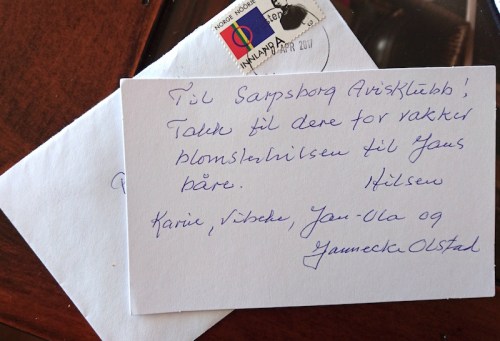 NORGE NOÖRJE
INNLAND A
APR 2017
Til Sarpsborg Avisklubb!
Takk til dere for vakker
blomsterhilsen til Jans
båre. Hilsen
Karin, Vibeke, Jan-Ola og
Jannecke Olstad